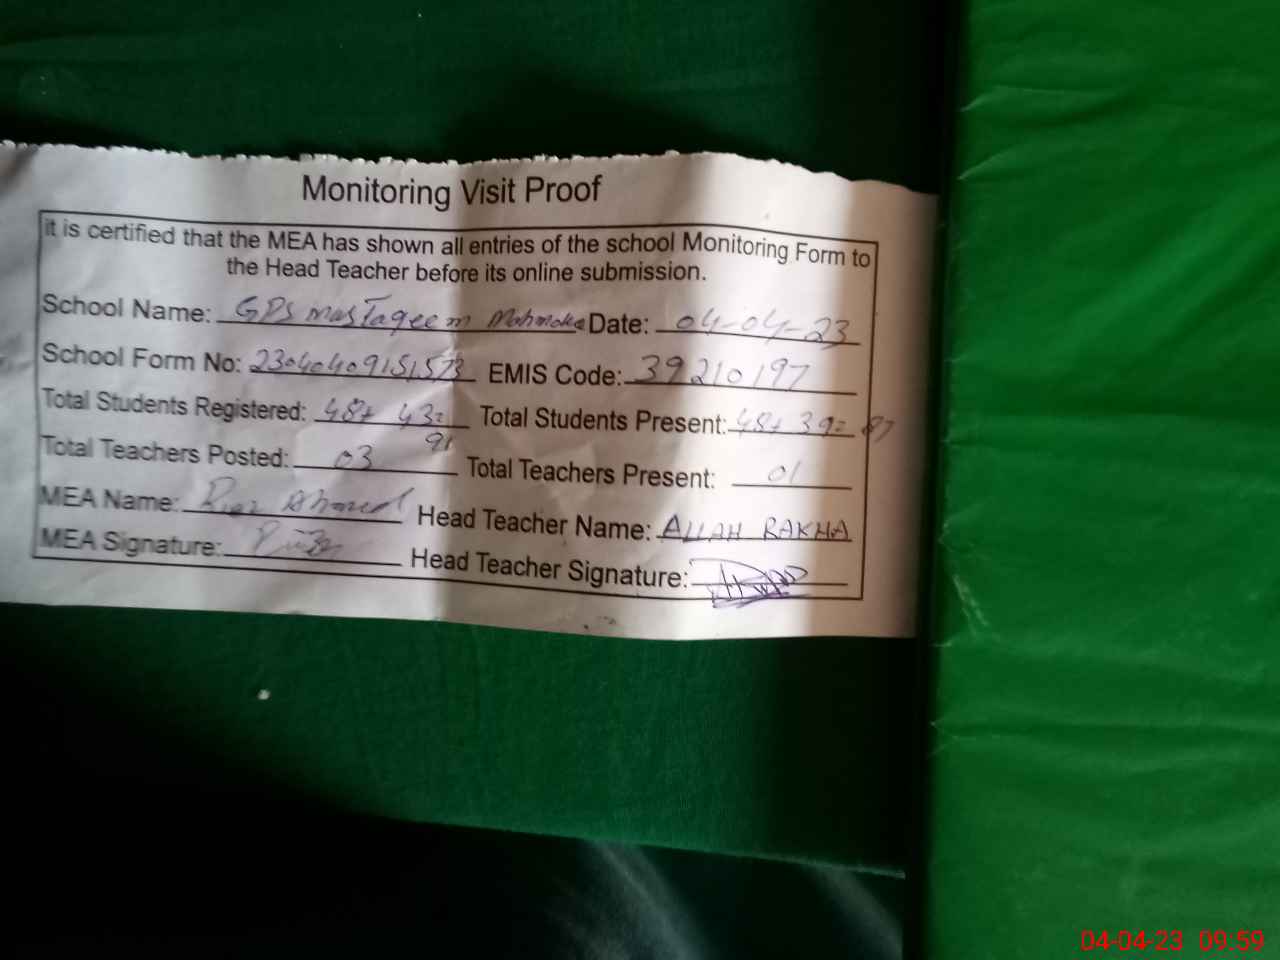 Monitoring Visit Proof
it is certified that the MEA has shown all entries of the school Monitoring Form to
the Head Teacher before its online submission.
School Name: GPS mustaqeem Mahmoka Date: 04-04-23
School Form No: 23040409151573 EMIS Code: 39210197
Total Students Registered: 48+ 43= Total Students Present: 48+ 39= 87
91
Total Teachers Posted: 03 Total Teachers Present: 01
MEA Name: Riaz Ahmed Head Teacher Name: ALLAH RAKHA
MEA Signature: Head Teacher Signature:
04-04-23 09:59